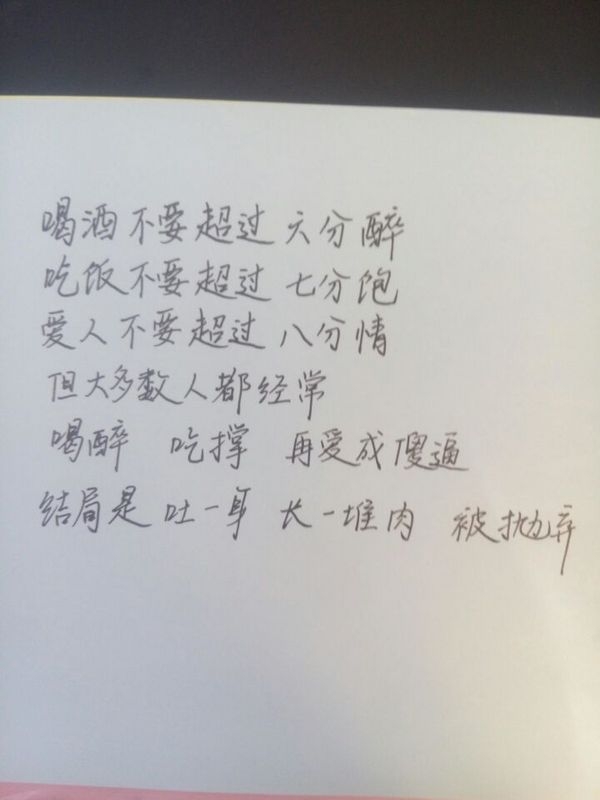 喝酒不要超过 六分醉
吃饭不要超过 七分饱
爱人不要超过 八分情
但大多数人都经常
喝醉 吃撑 再爱成傻逼
结局是 吐一身 长一堆肉 被抛弃